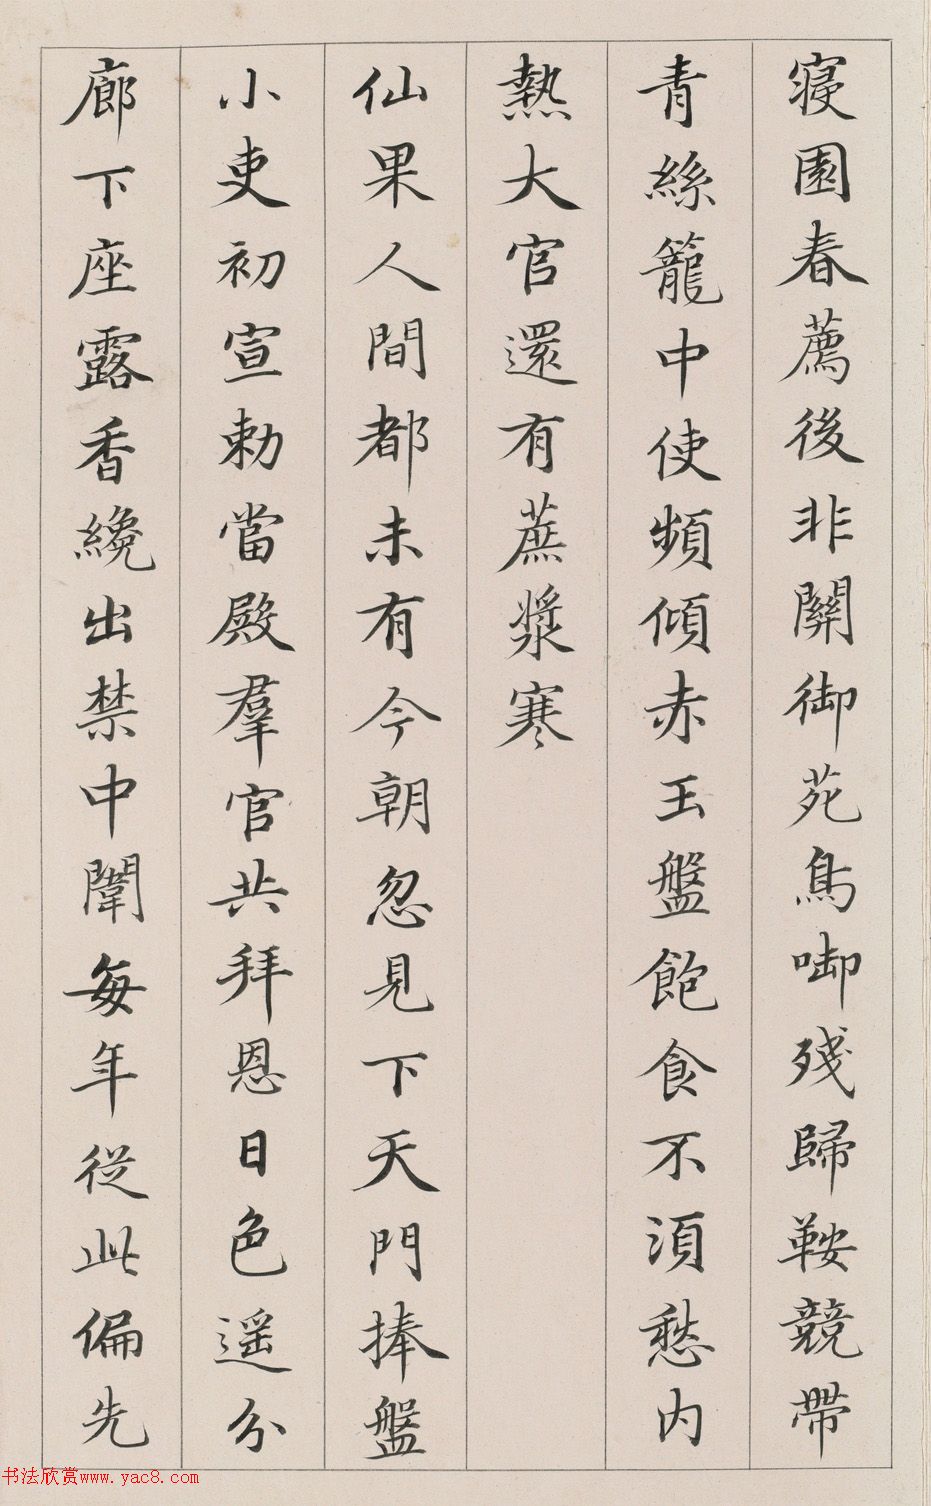 寝園春薦後非關御苑鳥啣残歸鞍競帶
青絲籠中使頻傾赤玉盤飽食不須愁内
熱大官還有蔗漿寒
仙果人間都未有今朝忽見下天門捧盤
小吏初宣勅當殿羣官共拜恩日色遥分
廊下座露香纔出禁中闈每年從此偏先
书法欣赏www.yac8.com